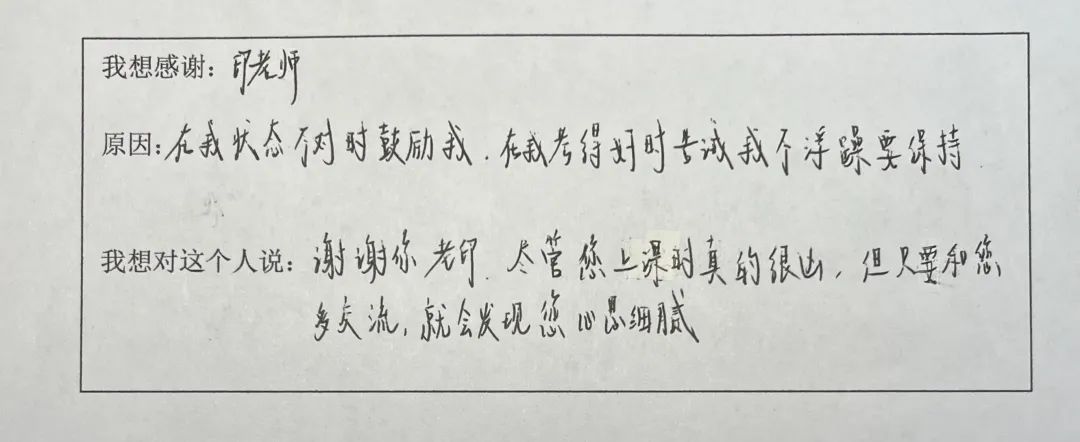 我想感谢：印老师
原因：在我状态不对时鼓励我．在我考得好时告诫我不浮躁要保持
我想对这个人说：谢谢你老印．尽管您上课时真的很凶，但只要和您
多交流，就会发现您心思细腻